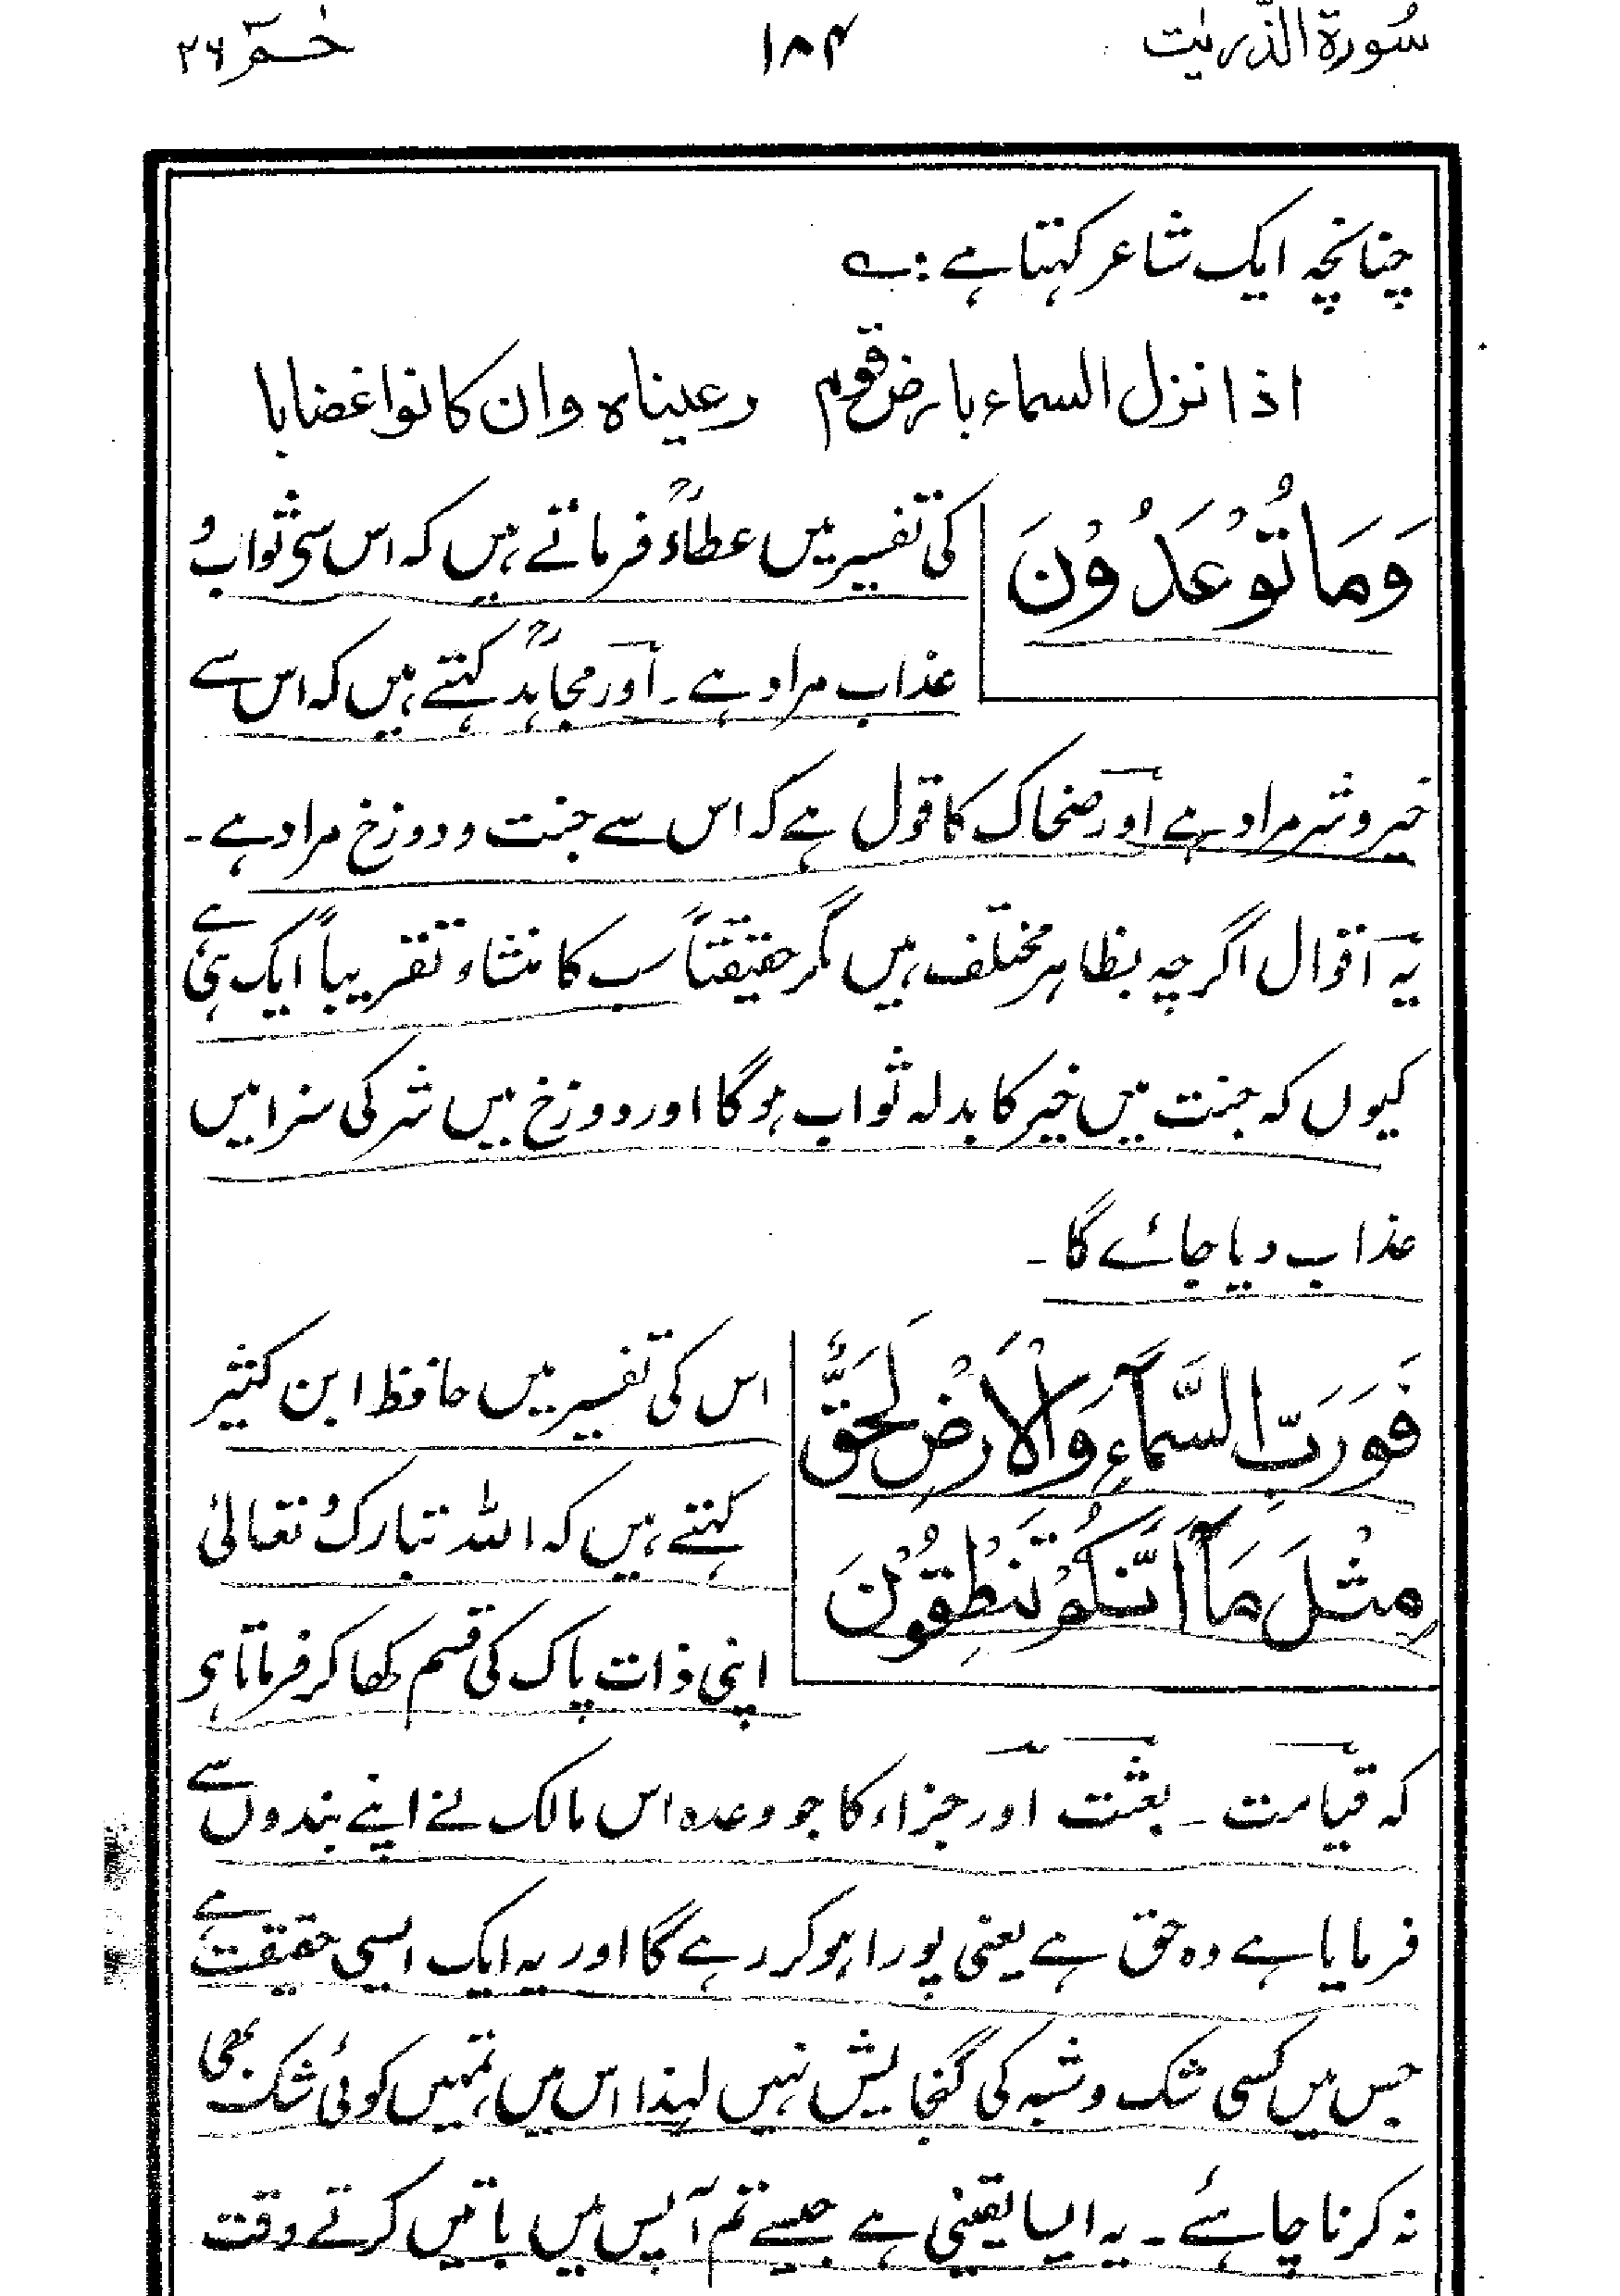 سُورة الذّٰریٰت ۱۸۴ حٰمٓ ۲۶
چنانچہ ایک شاعر کہتا ہے :ـ ؎
اذا نزل السماء بارض قوم رعیناہ وان کانوا غضابا
وَمَا تُوْعَدُوْنَ کی تفسیر میں عطاءؒ فرماتے ہیں کہ اس سی ثواب و
عذاب مراد ہے ۔ اور مجاہدؒ کہتے ہیں کہ اس سے
خیر و شر مراد ہے اور ضحاک کا قول ہے کہ اس سے جنت و دوزخ مراد ہے ۔
یہ اقوال اگرچہ بظاہر مختلف ہیں مگر حقیقتاً سب کا منشاء تقریباً ایک ہی ہے
کیوں کہ جنت میں خیر کا بدلہ ثواب ہوگا اور دوزخ میں شر کی سزا میں
عذاب دیا جائے گا ۔
فَوَرَبِّ السَّمَآءِ وَالْاَرْضِ لَحَقٌّ اس کی تفسیر میں حافظ ابن کثیر
کہتے ہیں کہ اللہ تبارک و تعالیٰ
مِثْلَ مَآ اَنَّكُمْ تَنْطِقُوْنَ اپنی ذات پاک کی قسم کھا کر فرماتا ہی
کہ قیامت ۔ بعثت اور جزاء کا جو وعدہ اس مالک نے اپنے بندوں سے
فرمایا ہے وہ حق ہے یعنی پورا ہو کر رہے گا اور یہ ایک ایسی حقیقت ہے
جس میں کسی شک و شبہ کی گنجایش نہیں لہذا اس میں تمہیں کوئی شک بھی
نہ کرنا چاہئے ۔ یہ ایسا یقینی ہے جیسے تم آپس میں باتیں کرتے وقت